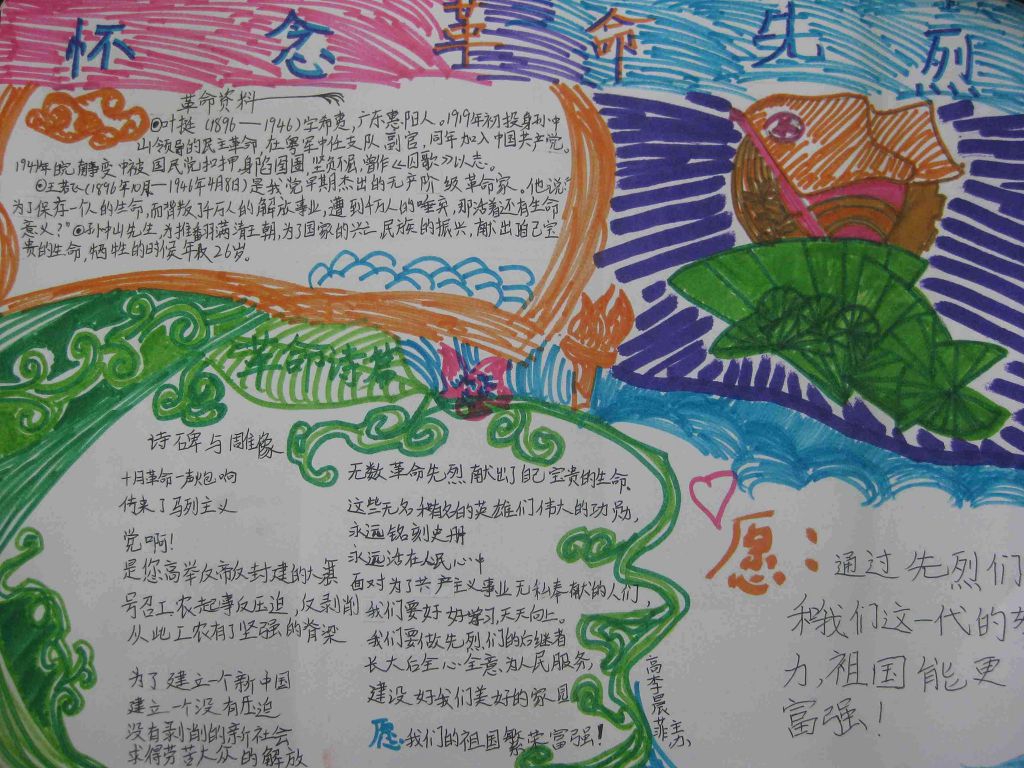 怀念革命先烈
革命资料
叶挺(1896—1946)字希夷,广东惠阳人。1919年初投身孙中
山领导的民主革命,在粤军中任支队副官,同年加入中国共产党。
1941年皖南事变中被国民党扣押,身陷囹圄,坚贞不屈,曾作《囚歌》以志。
王若飞(1896年10月—1946年4月8日)是我党早期杰出的无产阶级革命家。他说"
为了保存一个人的生命,而背叛了千万人的解放事业,遭到千万人的唾弃,那活着还有生命
意义?"孙中山先生,为推翻满清王朝,为了国家的兴,民族的振兴,献出自己宝
贵的生命,牺牲的时候年仅26岁。
革命诗篇
诗碑与雕像
十月革命一声炮响
传来了马列主义
党啊!
是您高举反帝反封建的大旗
号召工农起事反压迫,反剥削
从此工农有了坚强的脊梁
为了建立一个新中国
建立一个没有压迫
没有剥削的新社会
求得劳苦大众的解放
无数革命先烈献出了自己宝贵的生命。
这些无名和有名的英雄们伟大的功勋,
永远铭刻史册
永远活在人民心中
面对为了共产主义事业无私奉献的人们,
我们要好好学习,天天向上。
我们要做先烈们的后继者
长大后全心全意为人民服务
建设好我们美好的家园
愿:我们的祖国繁荣富强!
高李晨菲
愿:
通过先烈们
和我们这一代的努
力,祖国能更
富强!